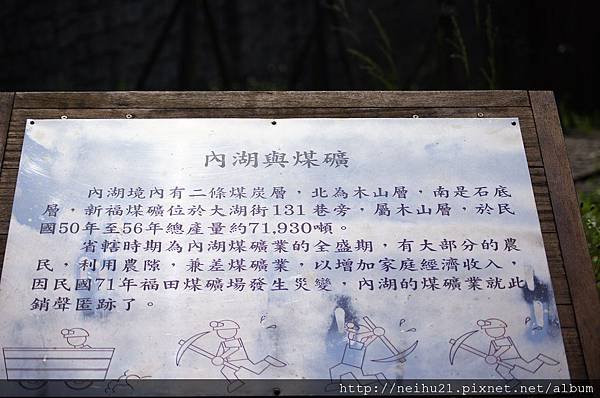 內湖與煤礦
內湖境內有二條煤炭層，北為木山層，南是石底
層，新福煤礦位於大湖街131巷旁，屬木山層，於民
國50年至56年總產量約71,930噸。
省轄時期為內湖煤礦業的全盛期，有大部分的農
民，利用農隙，兼差煤礦業，以增加家庭經濟收入，
因民國71年福田煤礦場發生災變，內湖的煤礦業就此
銷聲匿跡了。
http://neihu21.pixnet.net/album